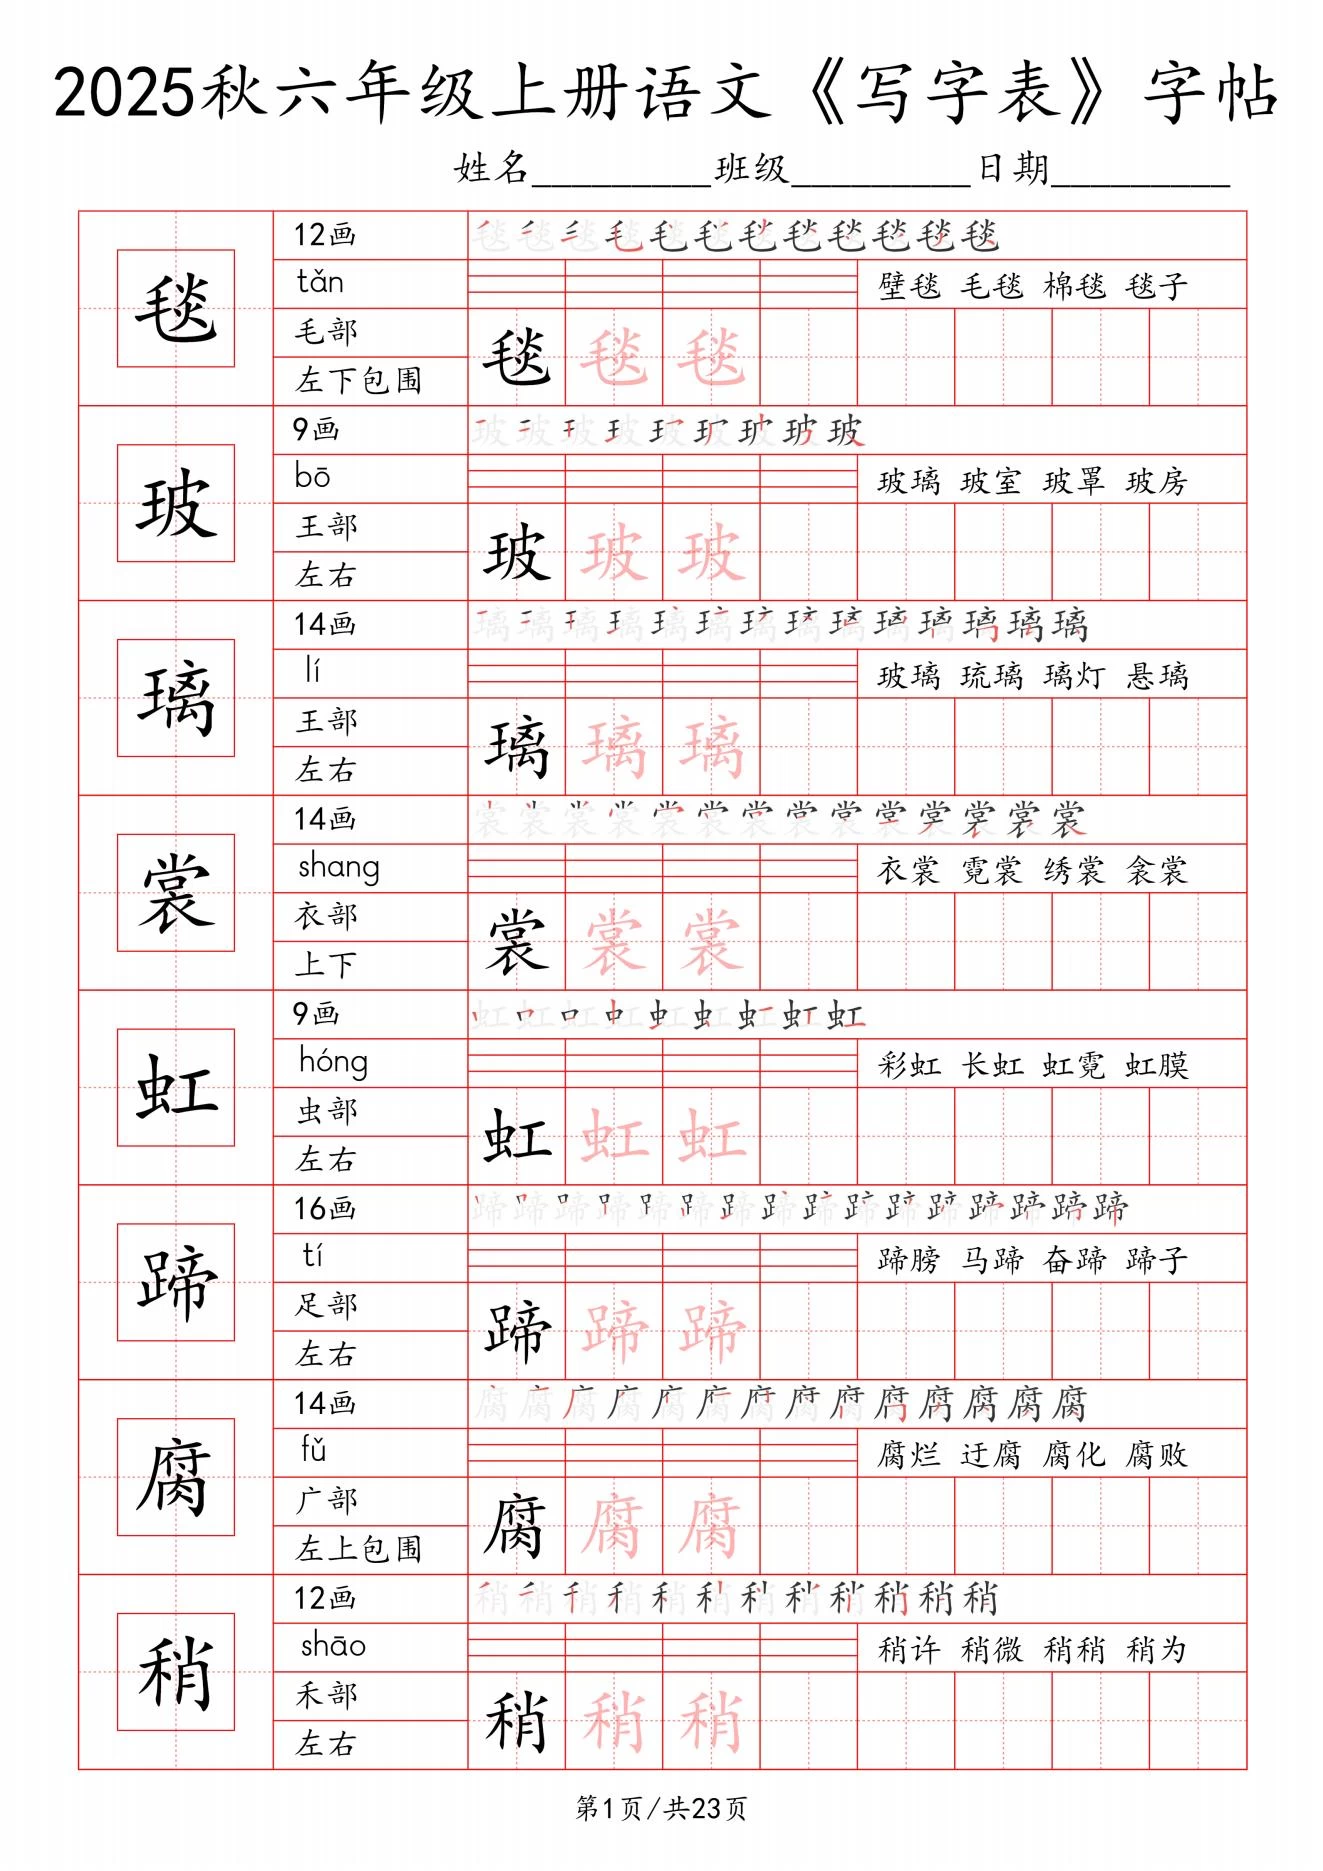 2025秋六年级上册语文《写字表》字帖
姓名_________班级_________日期_________
毯
12画
毯毯毯毯毯毯毯毯毯毯毯毯
tǎn
壁毯 毛毯 棉毯 毯子
毛部
左下包围
毯 毯 毯
玻
9画
玻玻玻玻玻玻玻玻玻
bō
玻璃 玻室 玻罩 玻房
王部
左右
玻 玻 玻
璃
14画
璃璃璃璃璃璃璃璃璃璃璃璃璃璃
lí
玻璃 琉璃 璃灯 悬璃
王部
左右
璃 璃 璃
裳
14画
裳裳裳裳裳裳裳裳裳裳裳裳裳裳
shang
衣裳 霓裳 绣裳 衾裳
衣部
上下
裳 裳 裳
虹
9画
虹虹虹虹虹虹虹虹虹
hóng
彩虹 长虹 虹霓 虹膜
虫部
左右
虹 虹 虹
蹄
16画
蹄蹄蹄蹄蹄蹄蹄蹄蹄蹄蹄蹄蹄蹄蹄蹄
tí
蹄膀 马蹄 奋蹄 蹄子
足部
左右
蹄 蹄 蹄
腐
14画
腐腐腐腐腐腐腐腐腐腐腐腐腐腐
fǔ
腐烂 迂腐 腐化 腐败
广部
左上包围
腐 腐 腐
稍
12画
稍稍稍稍稍稍稍稍稍稍稍稍
shāo
稍许 稍微 稍稍 稍为
禾部
左右
稍 稍 稍
第1页/共23页